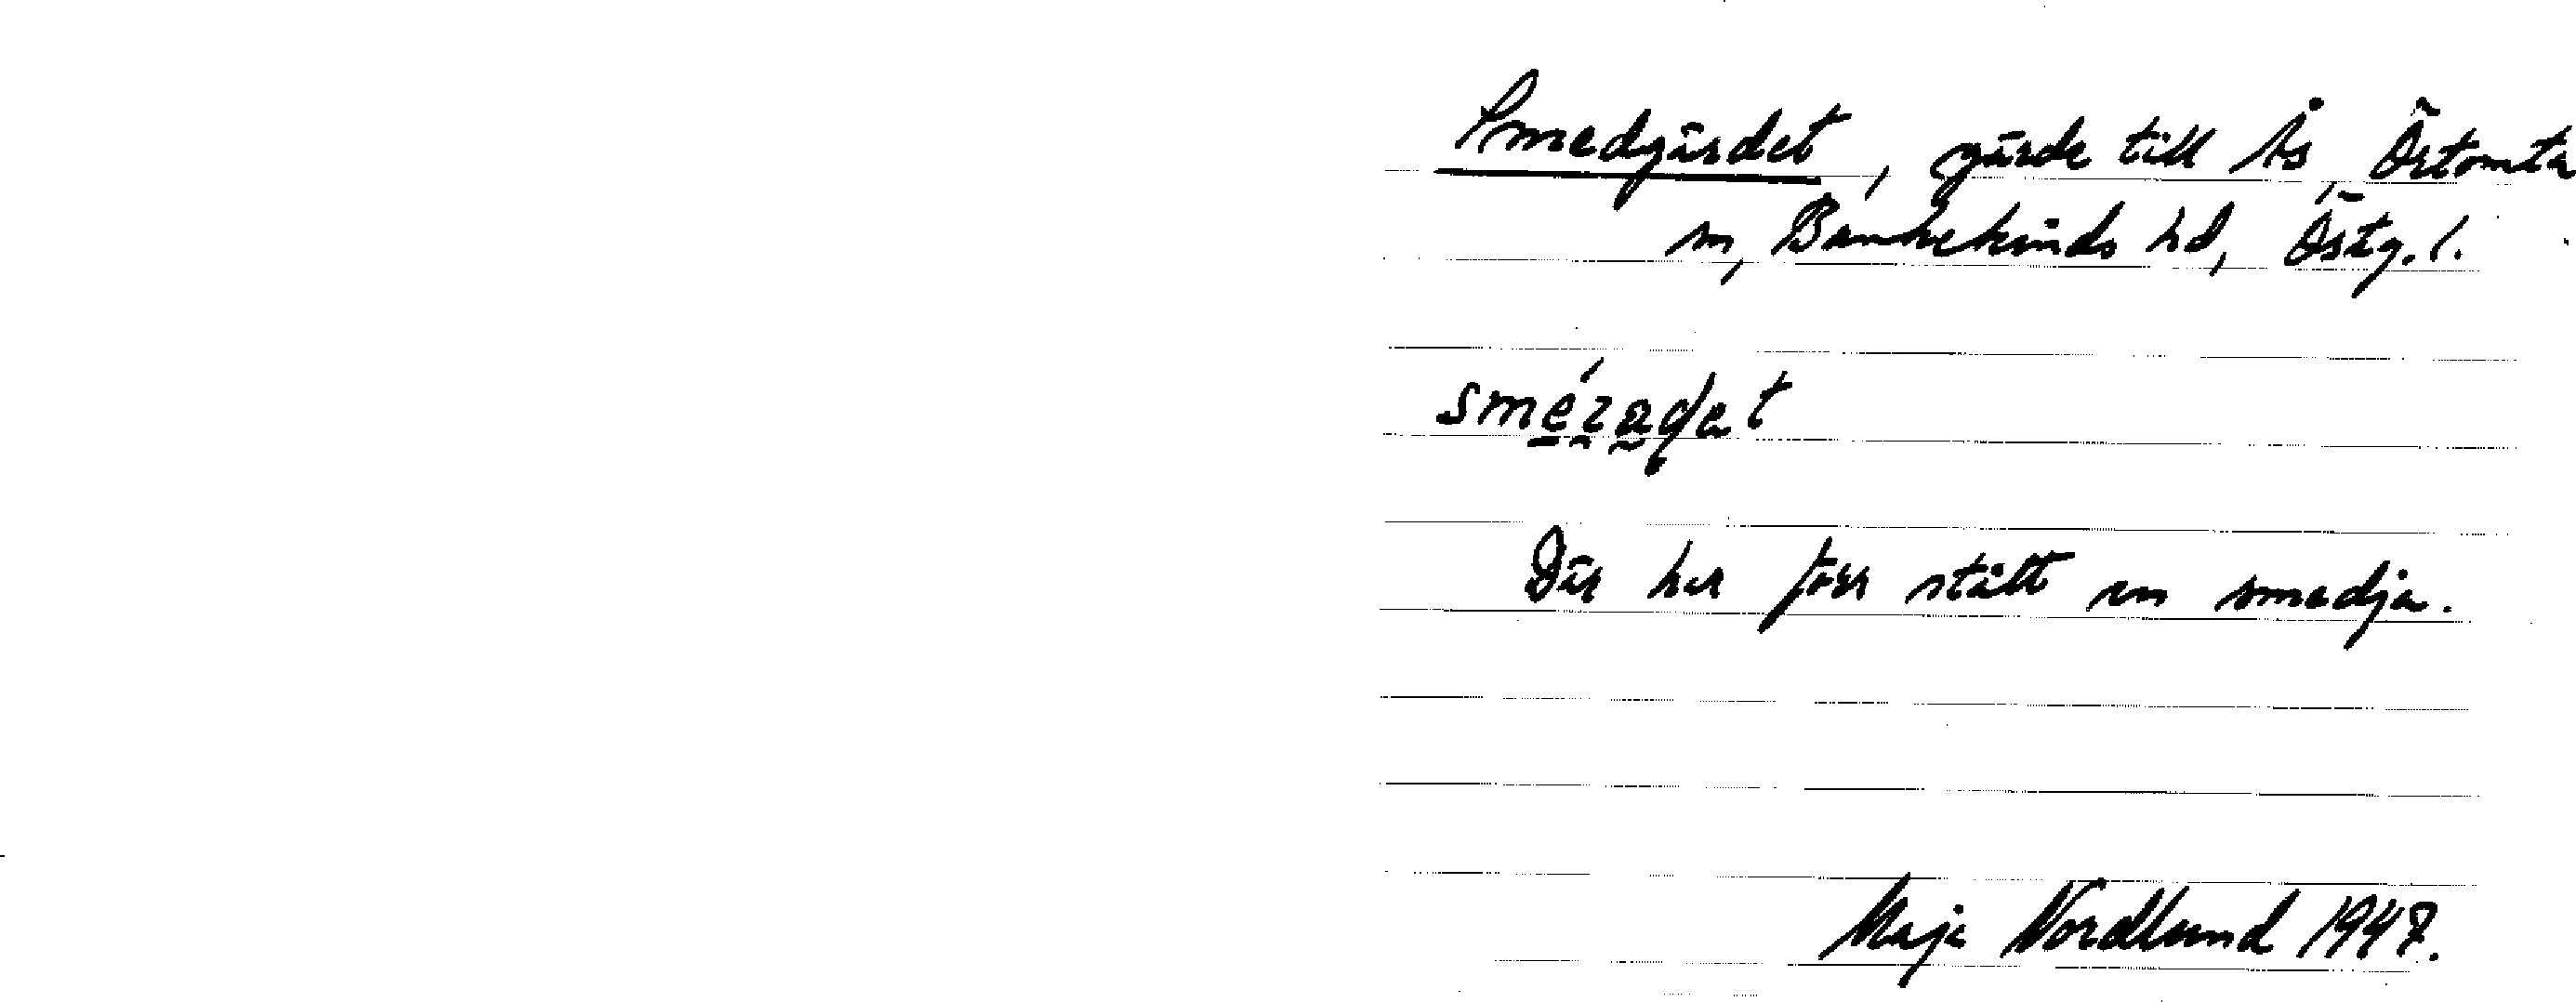 Smedgärdet, gärde till Ås, Örtomta
sn, Bankekinds hd, Östg. l.
Där har förr stått en smedja.
Maja Nordlund 1947.